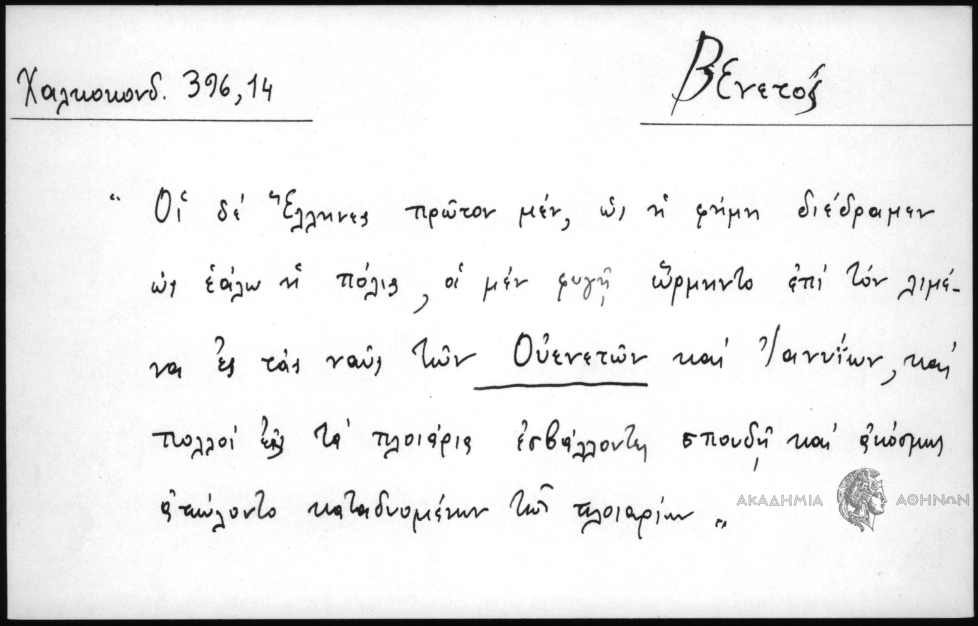 Χαλκοκονδ. 396,14
Βενετός
“ Οἱ δέ Ἕλληνες πρῶτον μέν, ὡς ἡ φήμη διέδραμεν
ὡς ἑάλω ἡ πόλις, οἱ μέν φυγῇ ὥρμηντο ἐπί τόν λιμέ-
να ἐς τάς ναῦς τῶν Οὐενετῶν καί Ἰαννΐων, καί
πολλοί ἐς τά πλοιάρια ἐσβάλλοντες σπουδῇ καί ἀκόσμως
ἀπώλοντο καταδυομένων τῶν πλοιαρίων „
ΑΚΑΔΗΜΙΑ ΑΘΗΝΩΝ